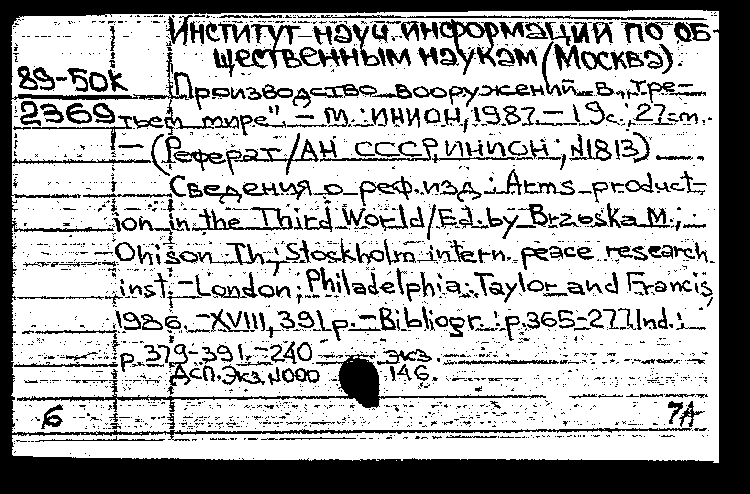 Институт науч. информации по об-
щественным наукам (Москва).
89-50к
Производство вооружений в „тре-
2369
тьем мире". - М.: ИНИОН, 1987. - 19с.; 27см.
- (Реферат / АН СССР, ИНИОН; N1813)
Сведения о реф. изд.: Arms product-
ion in the Third World / Ed. by Brzoska M.;
Ohlson Th.; Stockholm intern. peace research
inst. - London; Philadelphia: Taylor and Francis,
1986. - XVIII, 391 p. - Bibliogr.: p. 365-277. Ind.:
p. 379-391. - 240 экз.
ДСП. Экз. N000 146.
б 7А